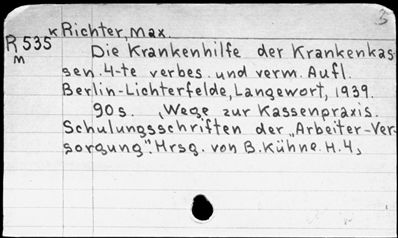 3
K Richter, Max.
R 535
m
Die Krankenhilfe der Krankenkas-
sen. 4-te verbes. und verm. Aufl.
Berlin-Lichterfelde, Langewort, 1939.
90 s. (Wege zur Kassenpraxis.
Schulungsschriften der „Arbeiter-Ver-
sorgung". Hrsg. von B. Kühne. H. 4)